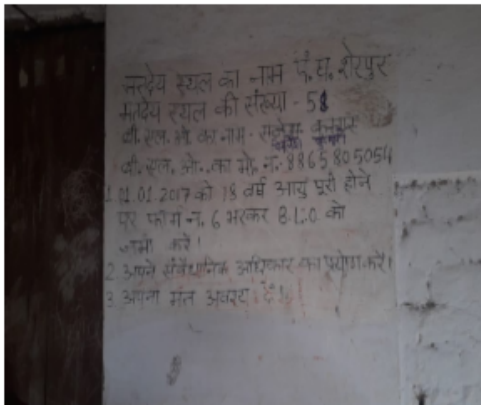 मतदेय स्थल का नाम पं. घ. शेरपुर
मतदेय स्थल की संख्या - 51
बी. एल. ओ. का नाम -
बी. एल. ओ. का मो. न. - 8865805054
1. 01.01.2017 को 18 वर्ष आयु पूरी होने
पर फार्म न. 6 भरकर B.L.O को
जमा करें।
2 अपने संवैधानिक अधिकार का प्रयोग करें।
3 अपना मत अवश्य दें।